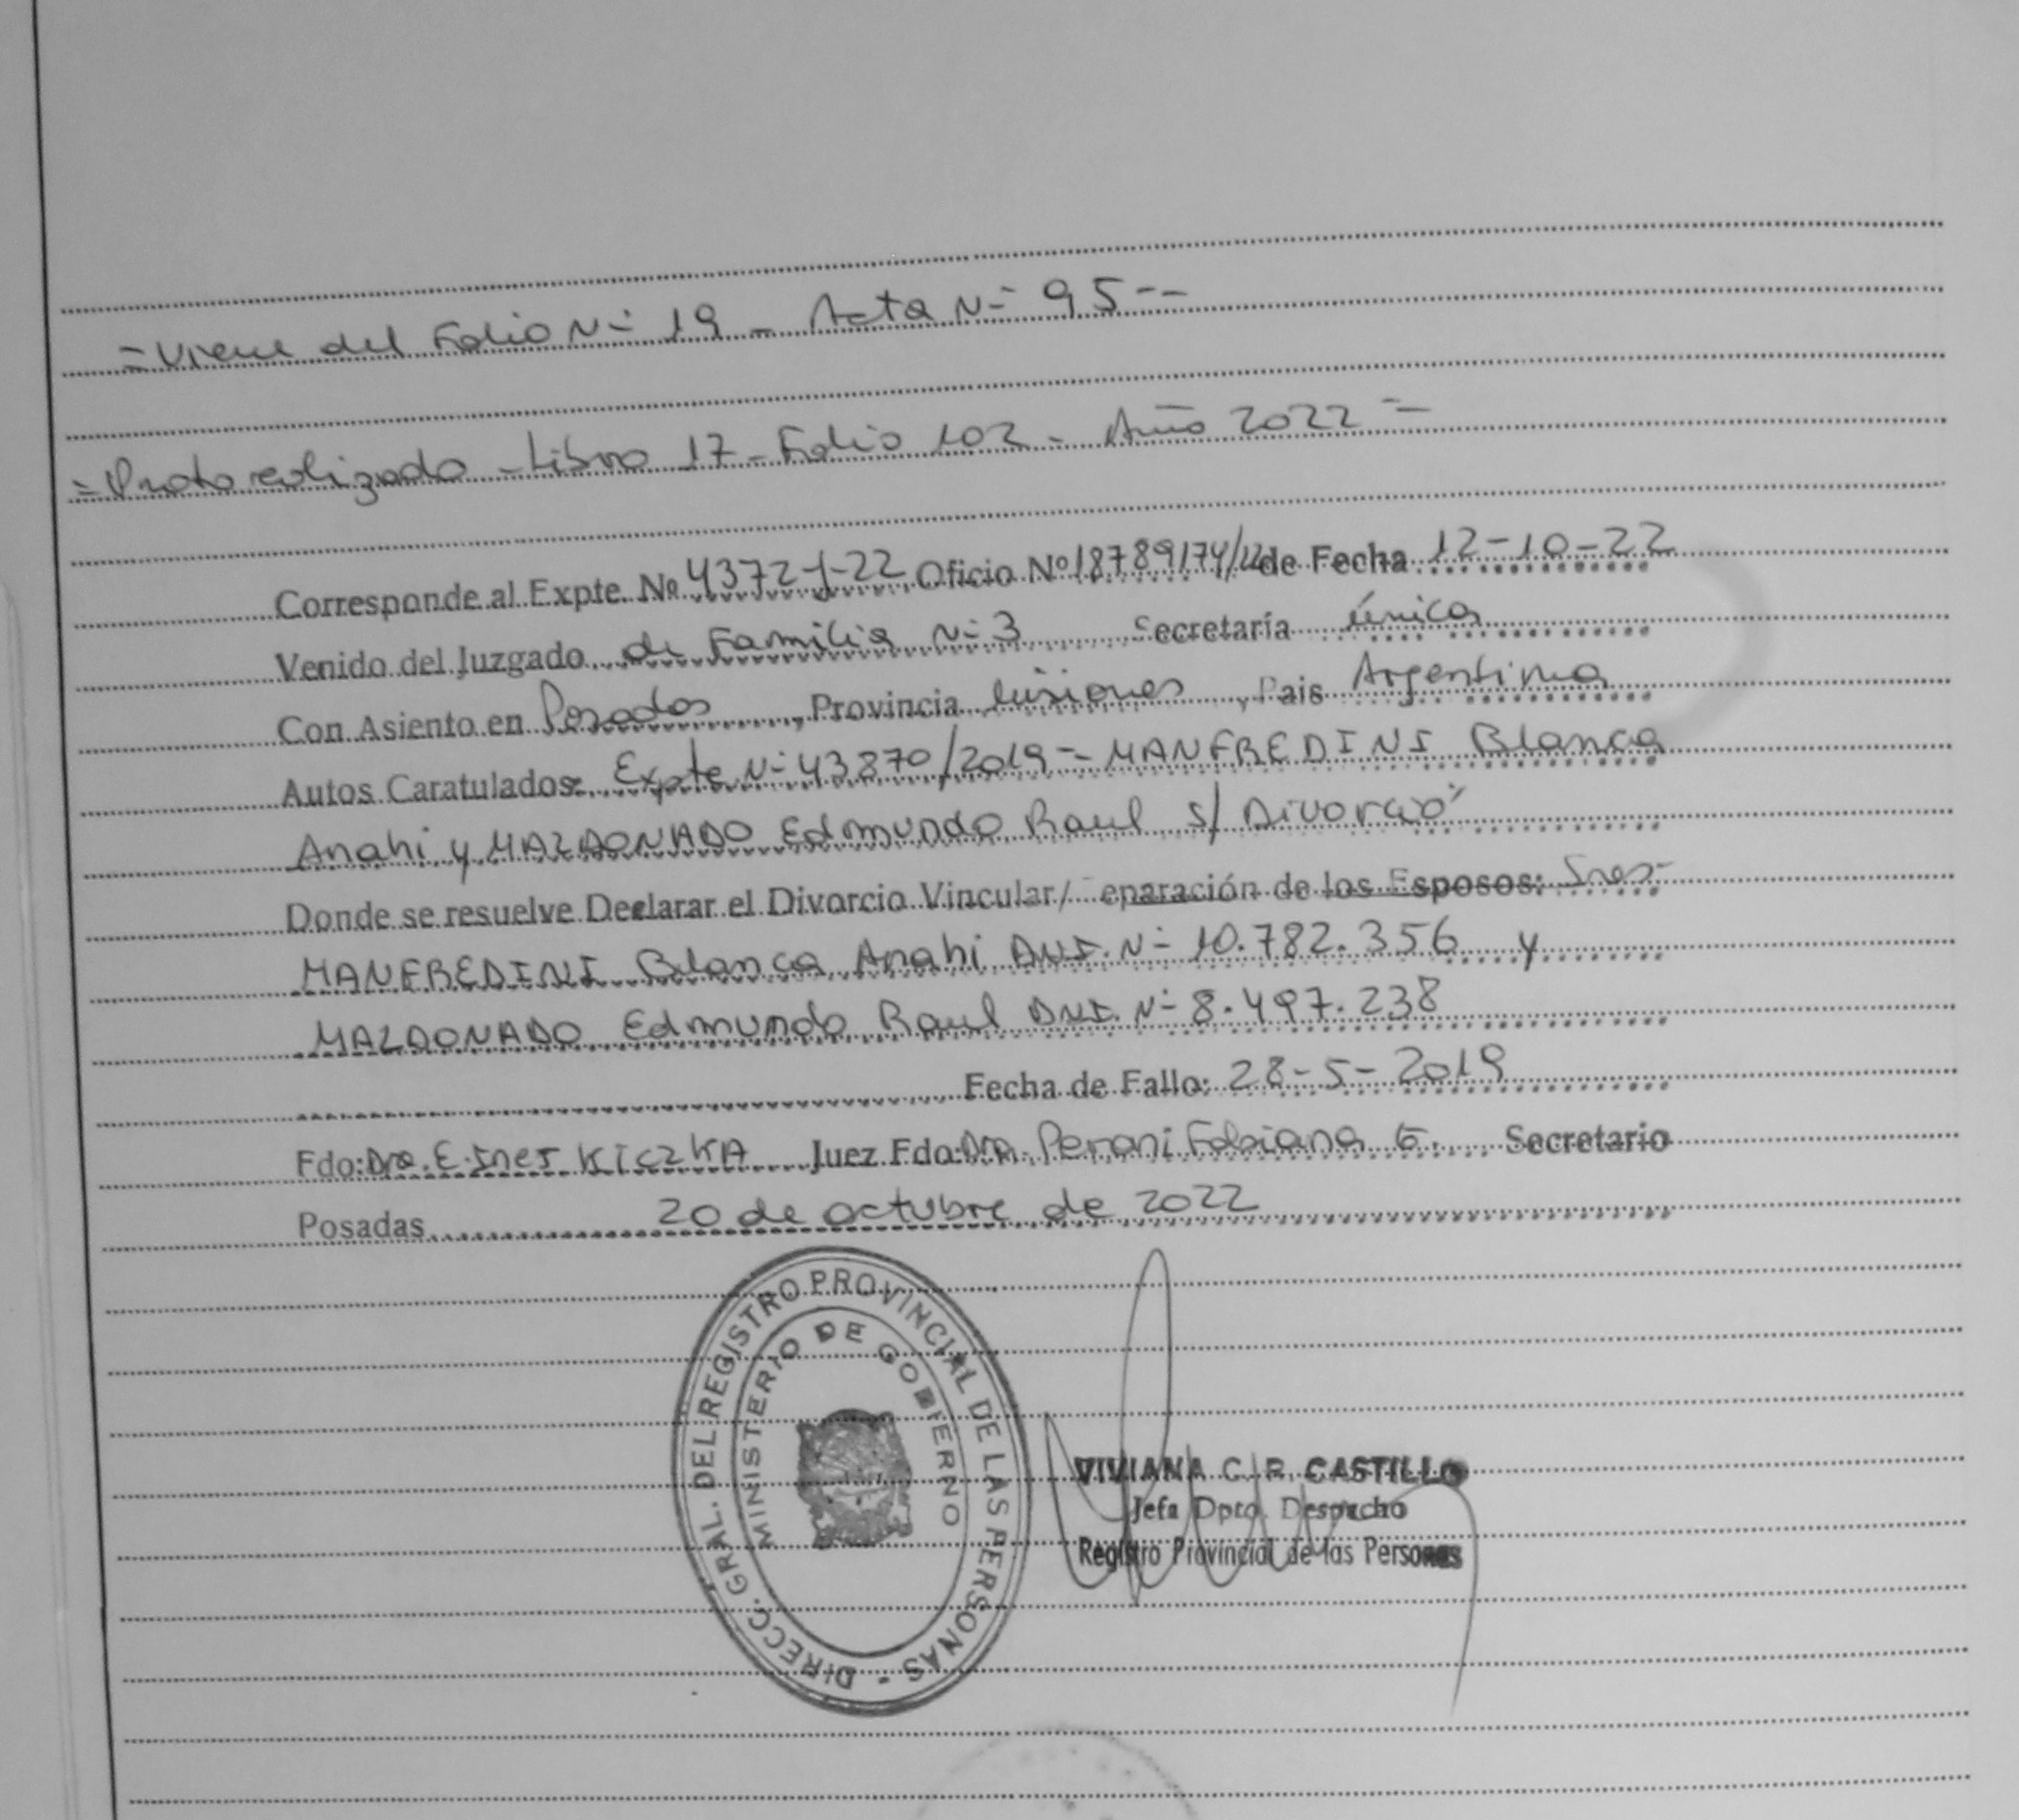 =Viene del Folio Nº 19 - Acta Nº 95--
=Protocolizado - Libro 17 - Folio 102 - Año 2022=
Corresponde al Expte. Nº 4372-J-22 Oficio Nº 18789174/22 de Fecha 12-10-22
Venido del Juzgado de Familia Nº 3 Secretaría única
Con Asiento en Posadas, Provincia Misiones, Pais Argentina
Autos Caratulados: Expte Nº 43870/2019 = MANFREDINI Blanca
Anahi y MALDONADO Edmundo Raul s/ Divorcio"
Donde se resuelve Declarar el Divorcio Vincular/ eparación de los Esposos: Sres-
MANFREDINI Blanca Anahi DNI. Nº 10.782.356 y
MALDONADO Edmundo Raul DNI. Nº 8.497.238
Fecha de Fallo: 28-5-2019
Fdo: Dra. E. Ines KICZKA Juez Fdo: Dra. Peroni Fabiana G. Secretario
Posadas 20 de octubre de 2022
DIRECC. GRAL. DEL REGISTRO PROVINCIAL DE LAS PERSONAS -
MINISTERIO DE GOBIERNO
VIVIANA C. R. CASTILLO
Jefa Dpto. Despacho
Registro Provincial de las Personas